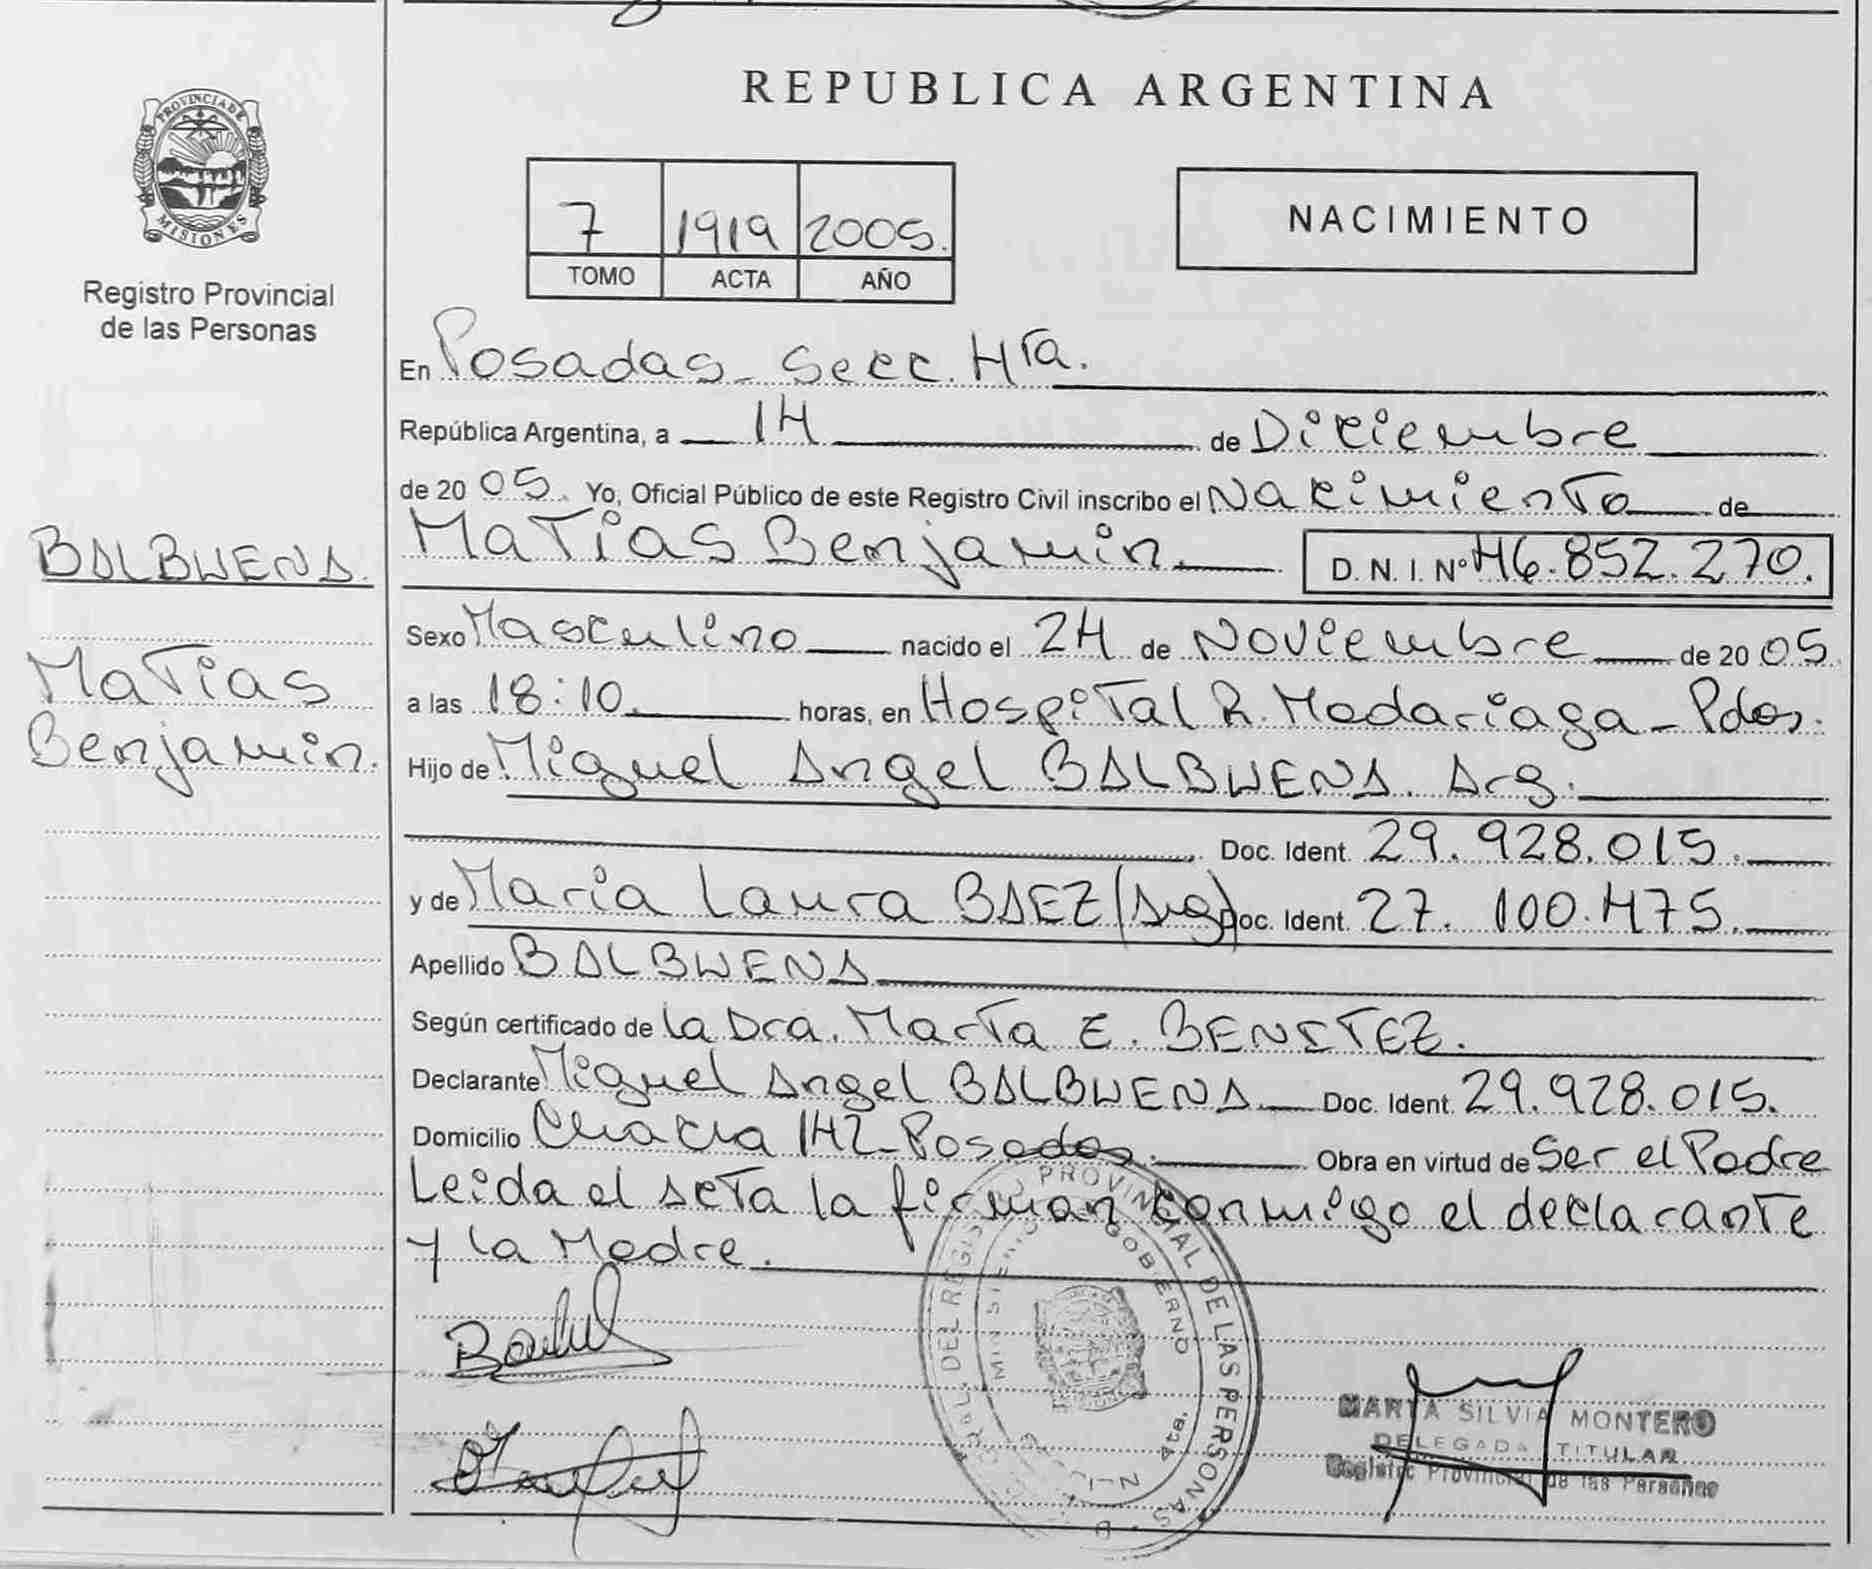 REPUBLICA ARGENTINA
PROVINCIA DE
MISIONES
Registro Provincial
de las Personas
7 1919 2005.
TOMO ACTA AÑO
NACIMIENTO
En Posadas - Secc. 4ta.
República Argentina, a 14 de Diciembre
de 2005. Yo, Oficial Público de este Registro Civil inscribo el Nacimiento de
Matias Benjamin. D. N. I. Nº 46.852.270.
BALBUENA.
Matias
Benjamin.
Sexo Masculino nacido el 24 de Noviembre de 2005.
a las 18:10 horas, en Hospital R. Madariaga - Pdas.
Hijo de Miguel Angel BALBUENA. Arg.
Doc. Ident. 29.928.015.
y de Maria Laura BAEZ (Arg) Doc. Ident. 27.100.475.
Apellido BALBUENA
Según certificado de la Dra. Marta E. BENITEZ.
Declarante Miguel Angel BALBUENA Doc. Ident. 29.928.015.
Domicilio Chacra 142 - Posadas. Obra en virtud de Ser el Padre
Leida el acta la firman conmigo el declarante
y la Madre.
PROVINCIAL DE LAS PERSONAS
GOBIERNO
4ta.
MARTA SILVIA MONTERO
DELEGADA TITULAR
Registro Provincial de las Personas